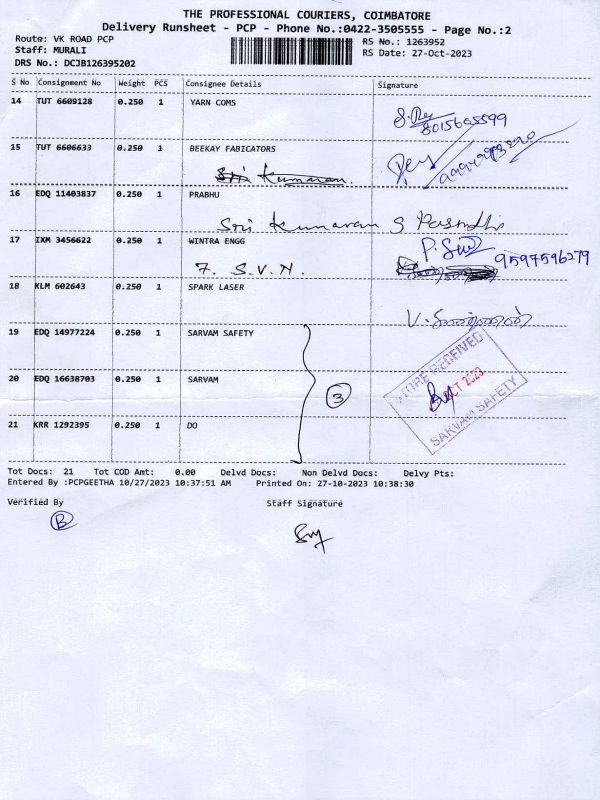 THE PROFESSIONAL COURIERS, COIMBATORE
Delivery Runsheet - PCP - Phone No.:0422-3505555 - Page No.:2
Route: VK ROAD PCP
RS No.: 1263952
Staff: MURALI
RS Date: 27-Oct-2023
DRS No.: DCJB126395202
S No Consignment No Weight PCS Consignee Details Signature
14 TUT 6609128 0.250 1 YARN COMS
8015605599
15 TUT 6606633 0.250 1 BEEKAY FABICATORS
Sri Kumaran
16 EDQ 11403837 0.250 1 PRABHU
Sri Kumaran S
17 IXM 3456622 0.250 1 WINTRA ENGG
7. S.V.N.
9597596279
18 KLM 602643 0.250 1 SPARK LASER
19 EDQ 14977224 0.250 1 SARVAM SAFETY
20 EDQ 16638703 0.250 1 SARVAM
3
STORE RECEIVED
OCT 2023
SARVAM SAFETY
21 KRR 1292395 0.250 1 DO
Tot Docs: 21 Tot COD Amt: 0.00 Delvd Docs: Non Delvd Docs: Delvy Pts:
Entered By :PCPGEETHA 10/27/2023 10:37:51 AM Printed On: 27-10-2023 10:38:30
Verified By Staff Signature
B